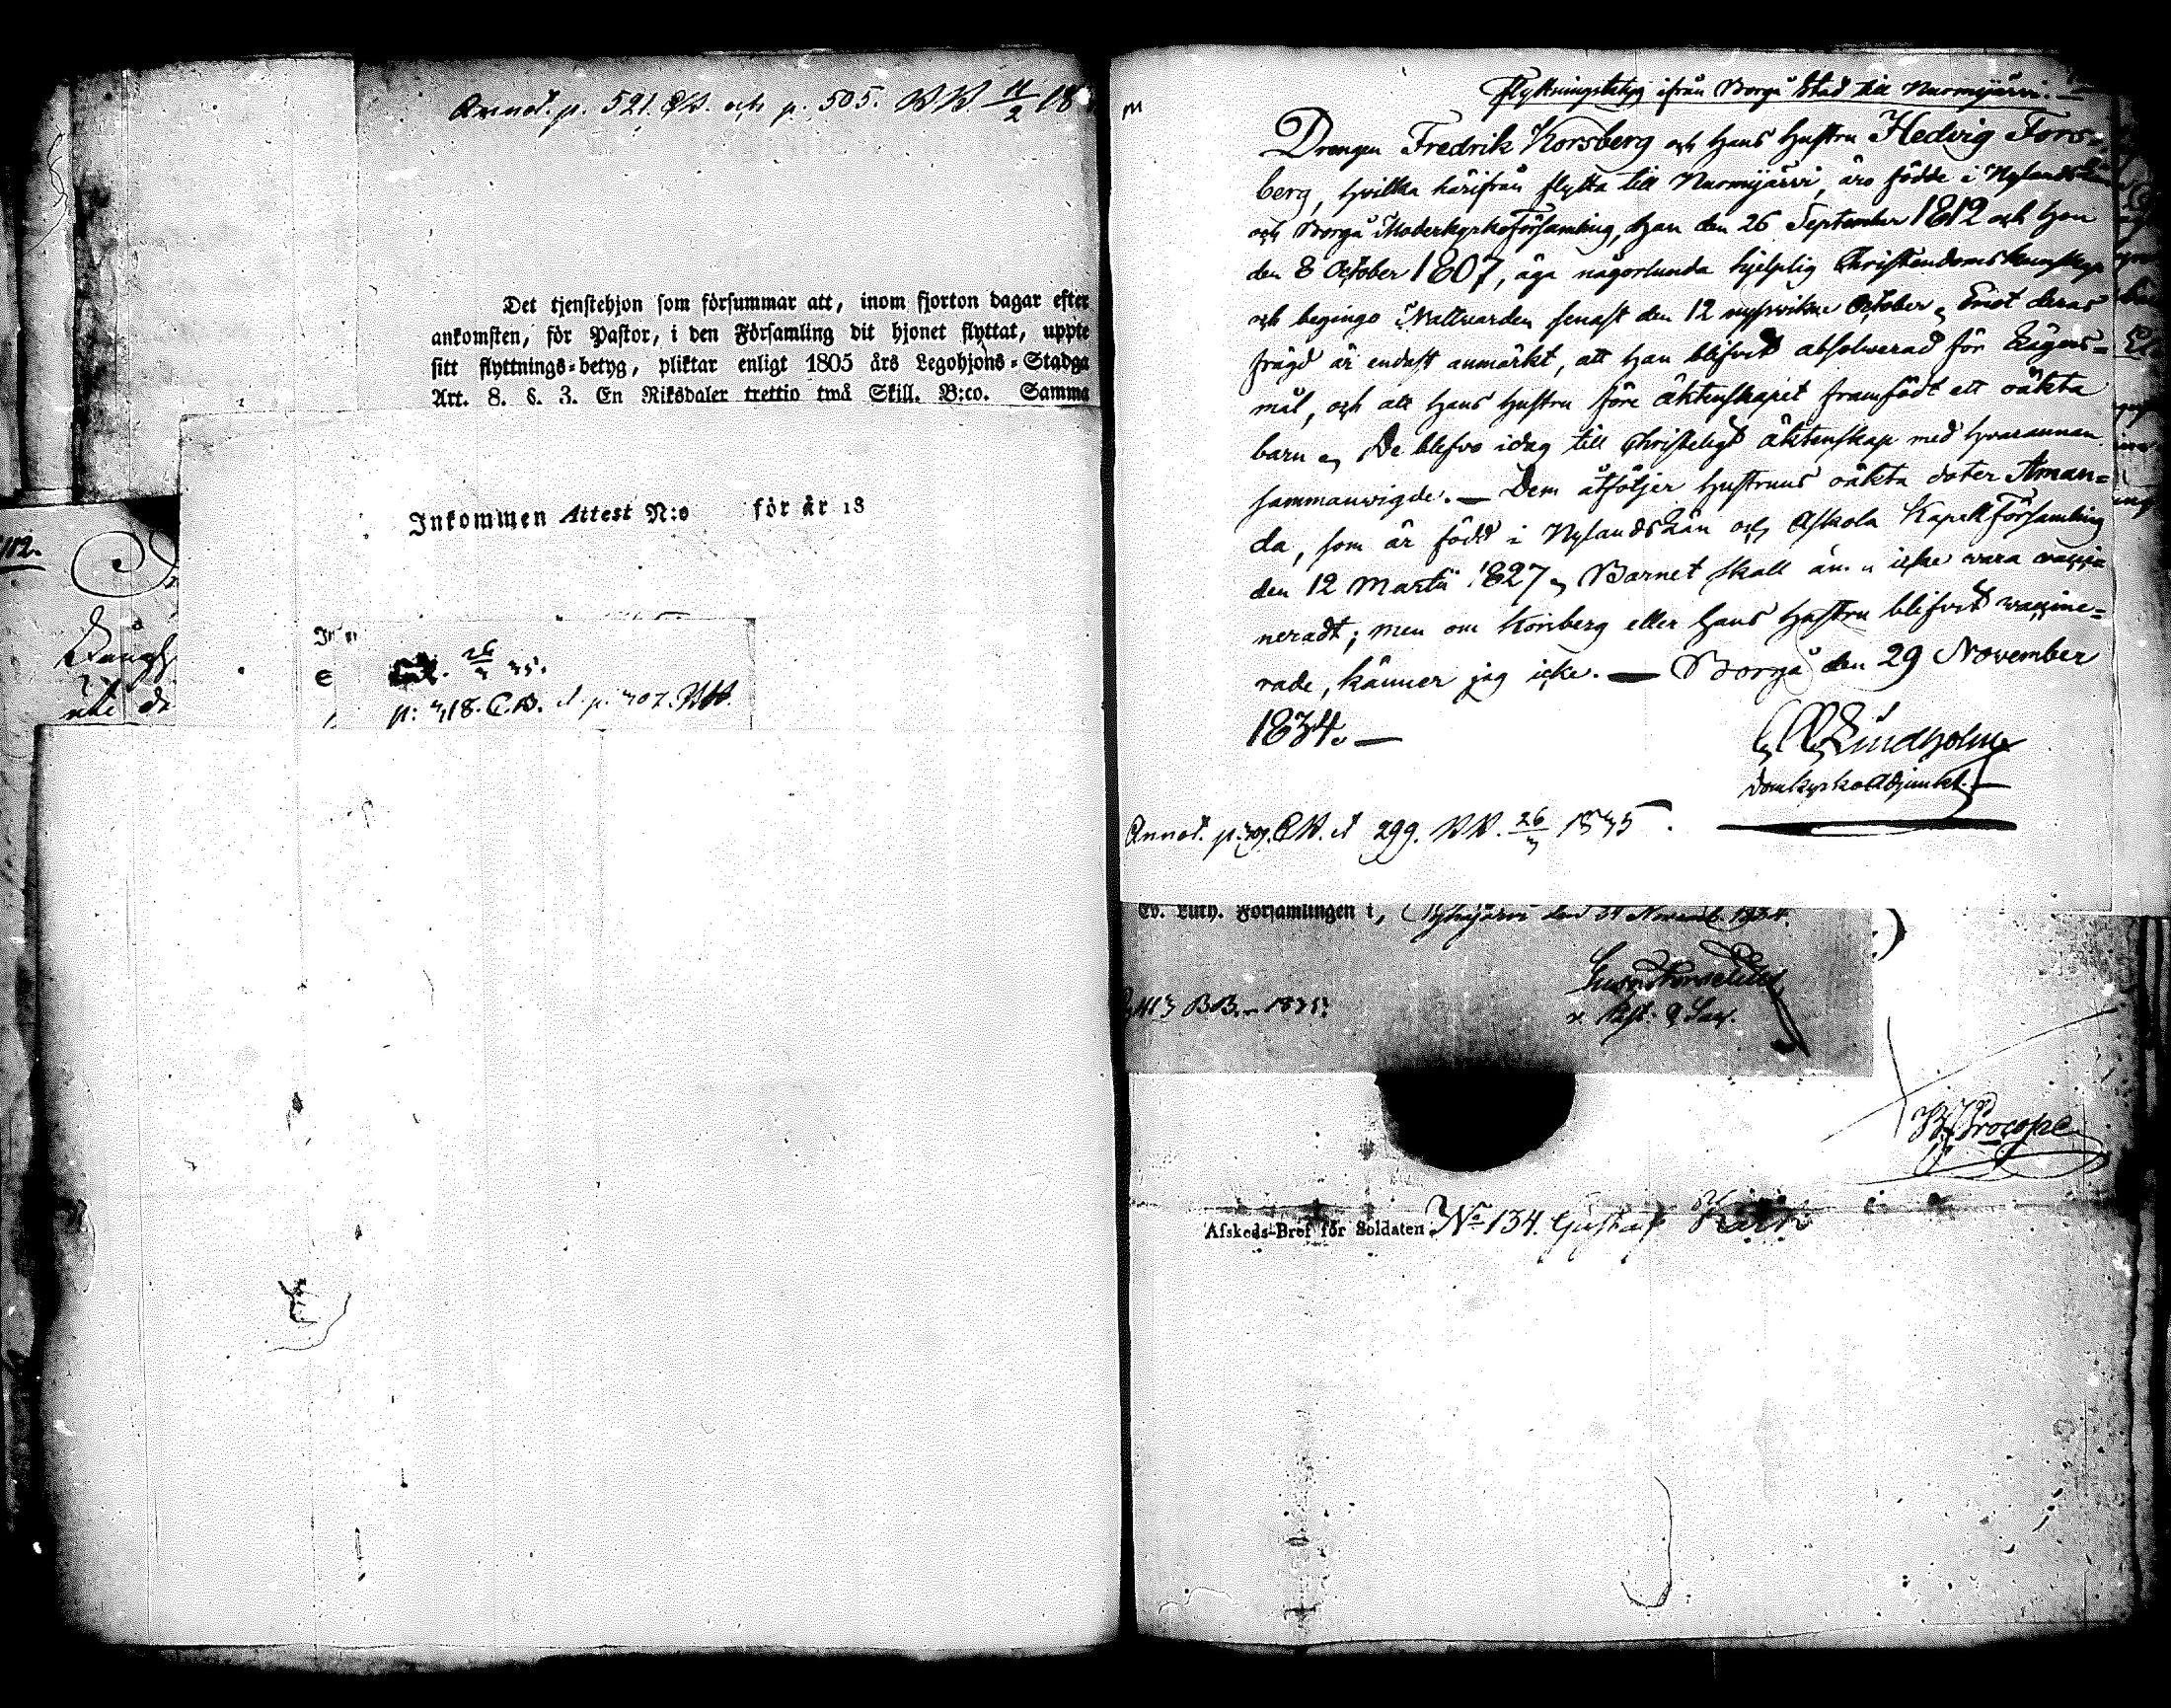 Annot. p. 521. CB. och p. 505. BB. 11/2 18
Det tjenstehjon som försummar att, inom fjorton dagar efter
ankomsten, för Pastor, i den Församling dit hjonet flyttat, uppte
sitt flyttnings-betyg, pliktar enligt 1805 års Legohjons-Stadga
Art. 8. §. 3. En Riksdaler trettio twå Skill. B:co. Samma
Inkommen Attest N:o för år 18
112.
26/3 35.
p: 318. C.B. et p. 307. BB.
Flyttningsbetyg ifrån Borgå Stad till Nurmijärvi. —
Drengen Fredrik Korsberg och hans hustru Hedvig Fors-
berg, hvilka härifrån flytta till Nurmijärvi, äro födde i Nylands Län
och Borgå Moderkyrko Församling, han den 26 September 1812 och hon
den 8 October 1807, äga någorlunda hjelplig Christendomskunskap
och begingo Nattvarden senast den 12 nysvikne October. Emot deras
frägd är endast anmärkt, att han blifvit absolverad för Lägers-
mål, och att hans hustru före äktenskapet framfödt ett oäkta
barn. De blefvo idag till Christeligt äktenskap med hvarannan
sammanvigde. — Dem åtföljer hustruns oäkta doter Aman-
da, som är född i Nylands Län och Askola Kapell Församling
den 12 Martii 1827. Barnet skall än icke vara vacci
neradt; men om Korsberg eller hans hustru blifvit vaccine-
rade, känner jag icke. — Borgå den 29 November
1834. —
Lindholm
Domkyrkoadjunkt. —
Annot. p. CB. et 299. BB. 26/3 1835.
Ev. Luth. Församlingen i, den Novemb. 1834.
BB. 1835.
Procopé
Afskeds-Bref för Soldaten No 134. Gustaf